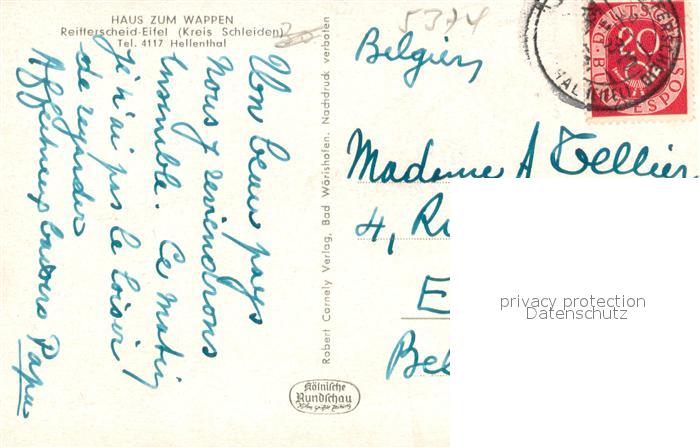 HAUS ZUM WAPPEN
Reifferscheid-Eifel (Kreis Schleiden)
Tel. 4117 Hellenthal
5374
Un beau pays
Nous y reviendrons
Ensemble. Ce matin
je n'ai pas le loisir
de regarder
Affectueux baisers Papa
Robert Cornely Verlag, Bad Wörishofen. Nachdruck verboten
Kölnische
Rundschau
Belgien
Madame A Tellier
4, R
E
Bel
DEUTSCHE BUNDESPOST
20
privacy protection
Datenschutz